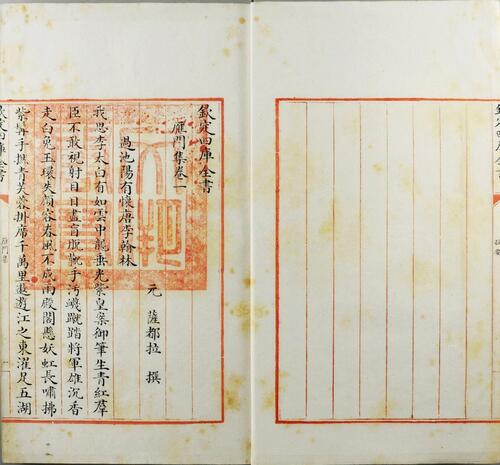 欽定四庫全書
雁門集卷一
元 薩都拉 撰
過池陽有懷唐李翰林
我思李太白有如雲中龍垂光紫皇案御筆生青紅羣
臣不敢視射目目盡盲脫靴手汚衊蹴踏將軍雄沉香
走白兔玉環失顏容春風不成雨殿閣懸妖虹長嘯拂
紫髯手撚青芙蓉掛席千萬里遨遊江之東濯足五湖
欽定四庫全書
雁門集